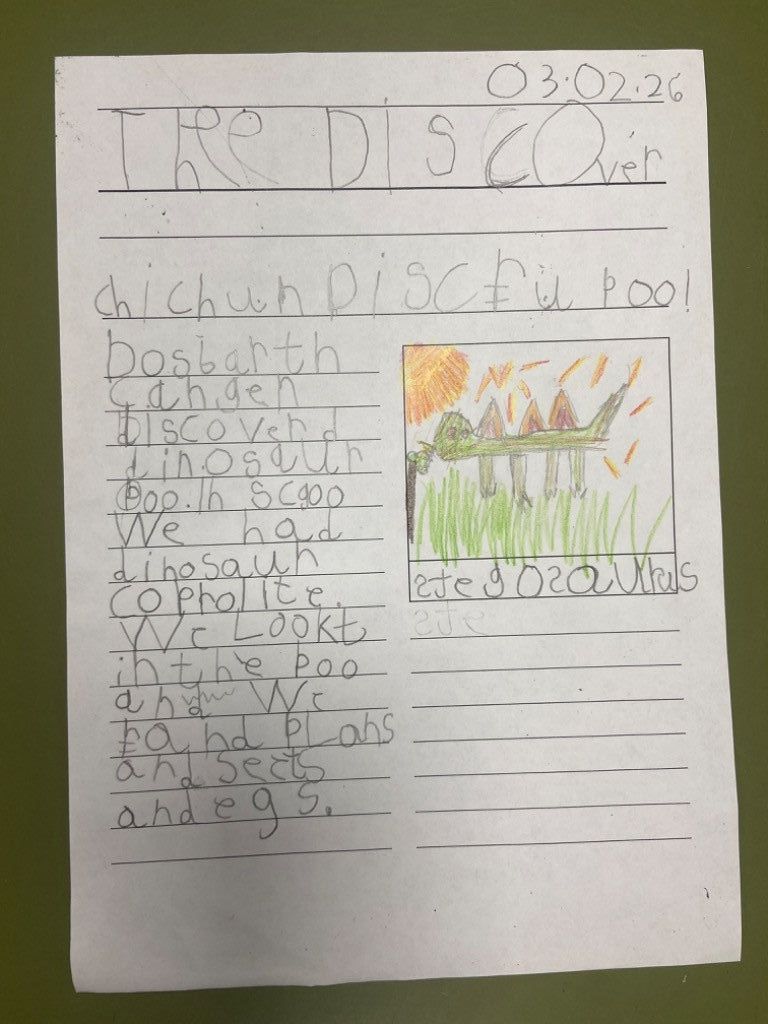 03.02.26
THe DISCOver
chichun DISCFU POO!
Dosbarth
Cangen
DIScoverd
dinosaur
Poo. In scgoo
We had
dinosaur
coprolite.
We Lookt
in the Poo
and We
Fand PLans
and sects
and egs.
stegosaurus
ste